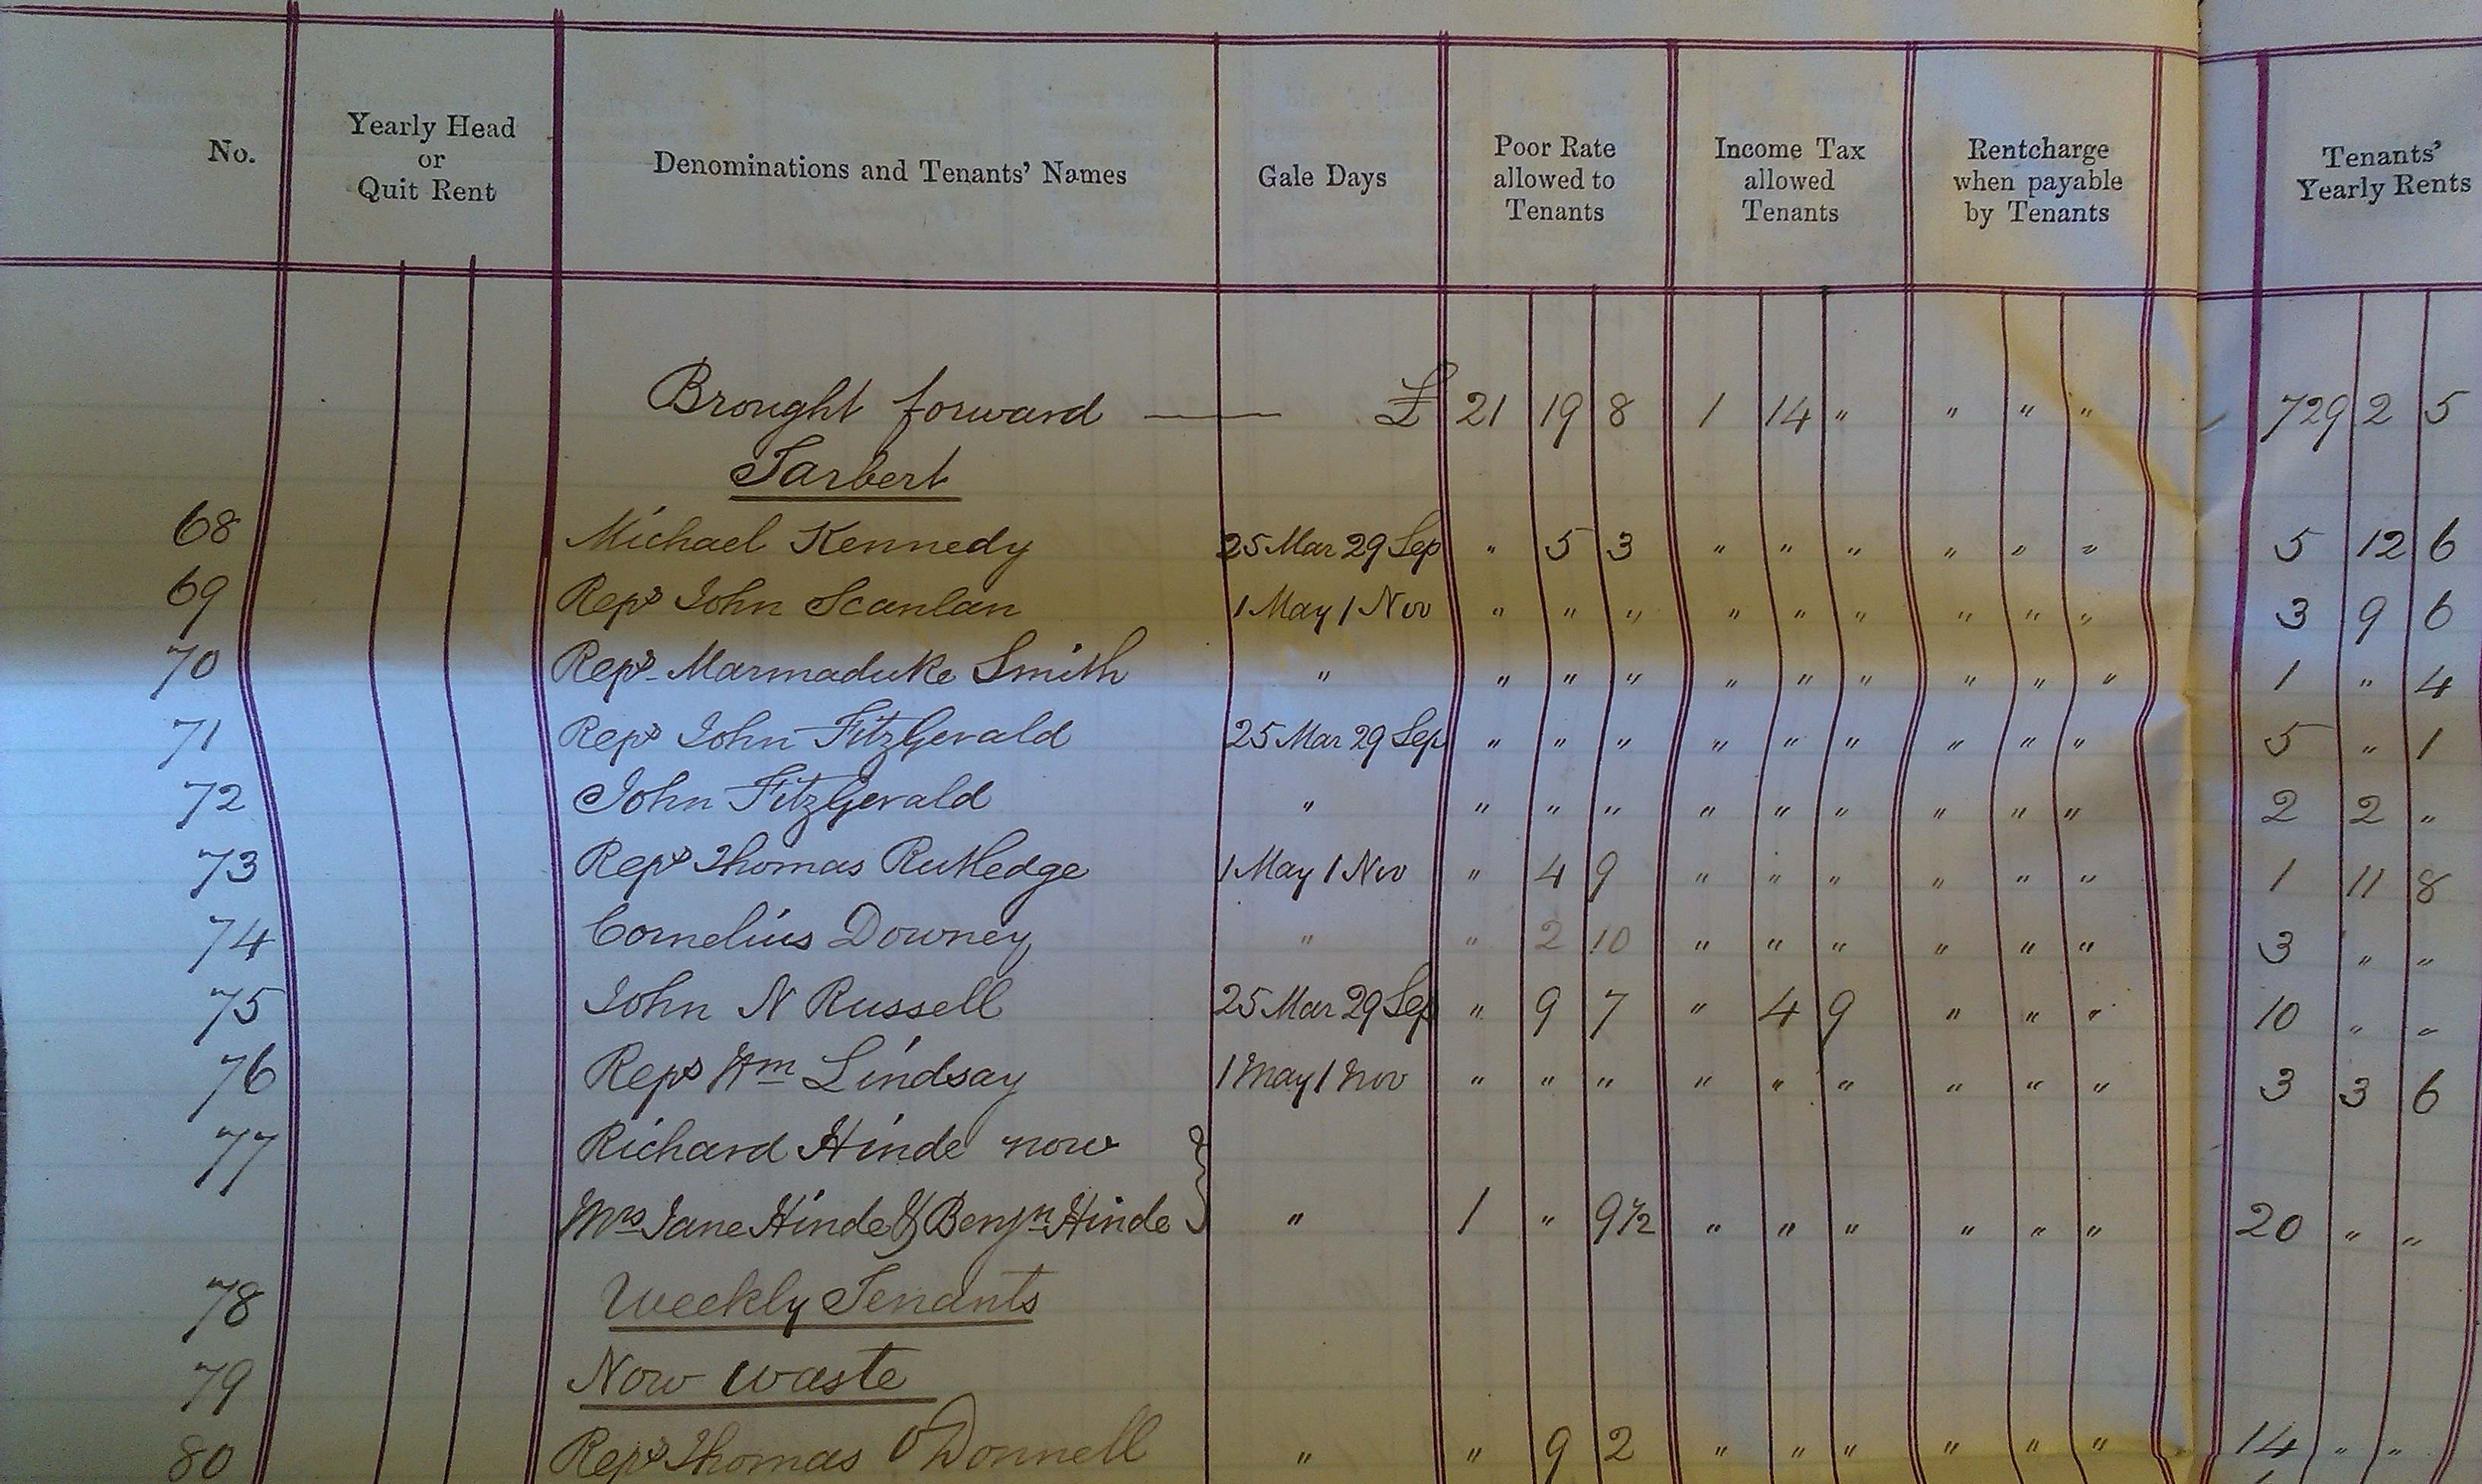 No. Yearly Head or Quit Rent Denominations and Tenants' Names Gale Days Poor Rate allowed to Tenants Income Tax allowed Tenants Rentcharge when payable by Tenants Tenants' Yearly Rents
Brought forward — £ 21 19 8 1 14 " " " " 729 2 5
Tarbert
68 Michael Kennedy 25 Mar 29 Sep " 5 3 " " " " " " 5 12 6
69 Reps John Scanlan 1 May 1 Nov " " " " " " " " " 3 9 6
70 Reps Marmaduke Smith " " " " " " " " " " 1 " 4
71 Reps John FitzGerald 25 Mar 29 Sep " " " " " " " " " 5 " 1
72 John FitzGerald " " " " " " " " " " 2 2 "
73 Reps Thomas Rutledge 1 May 1 Nov " 4 9 " " " " " " 1 11 8
74 Cornelius Downey " " 2 10 " " " " " " 3 " "
75 John N Russell 25 Mar 29 Sep " 9 7 " 4 9 " " " 10 " "
76 Reps Wm Lindsay 1 May 1 Nov " " " " " " " " " 3 3 6
77 Richard Hinde now
Mrs Jane Hinde & Benjn Hinde " 1 " 9½ " " " " " " 20 " "
78 Weekly Tenants
79 Now waste
80 Reps Thomas O'Donnell " " 9 2 " " " " " " 14 " "